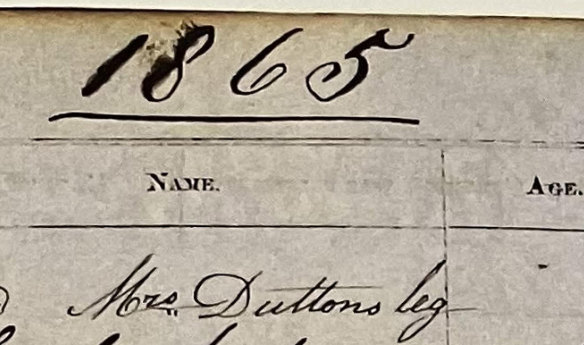 1865
NAME. AGE.
Mrs. Duttons leg -